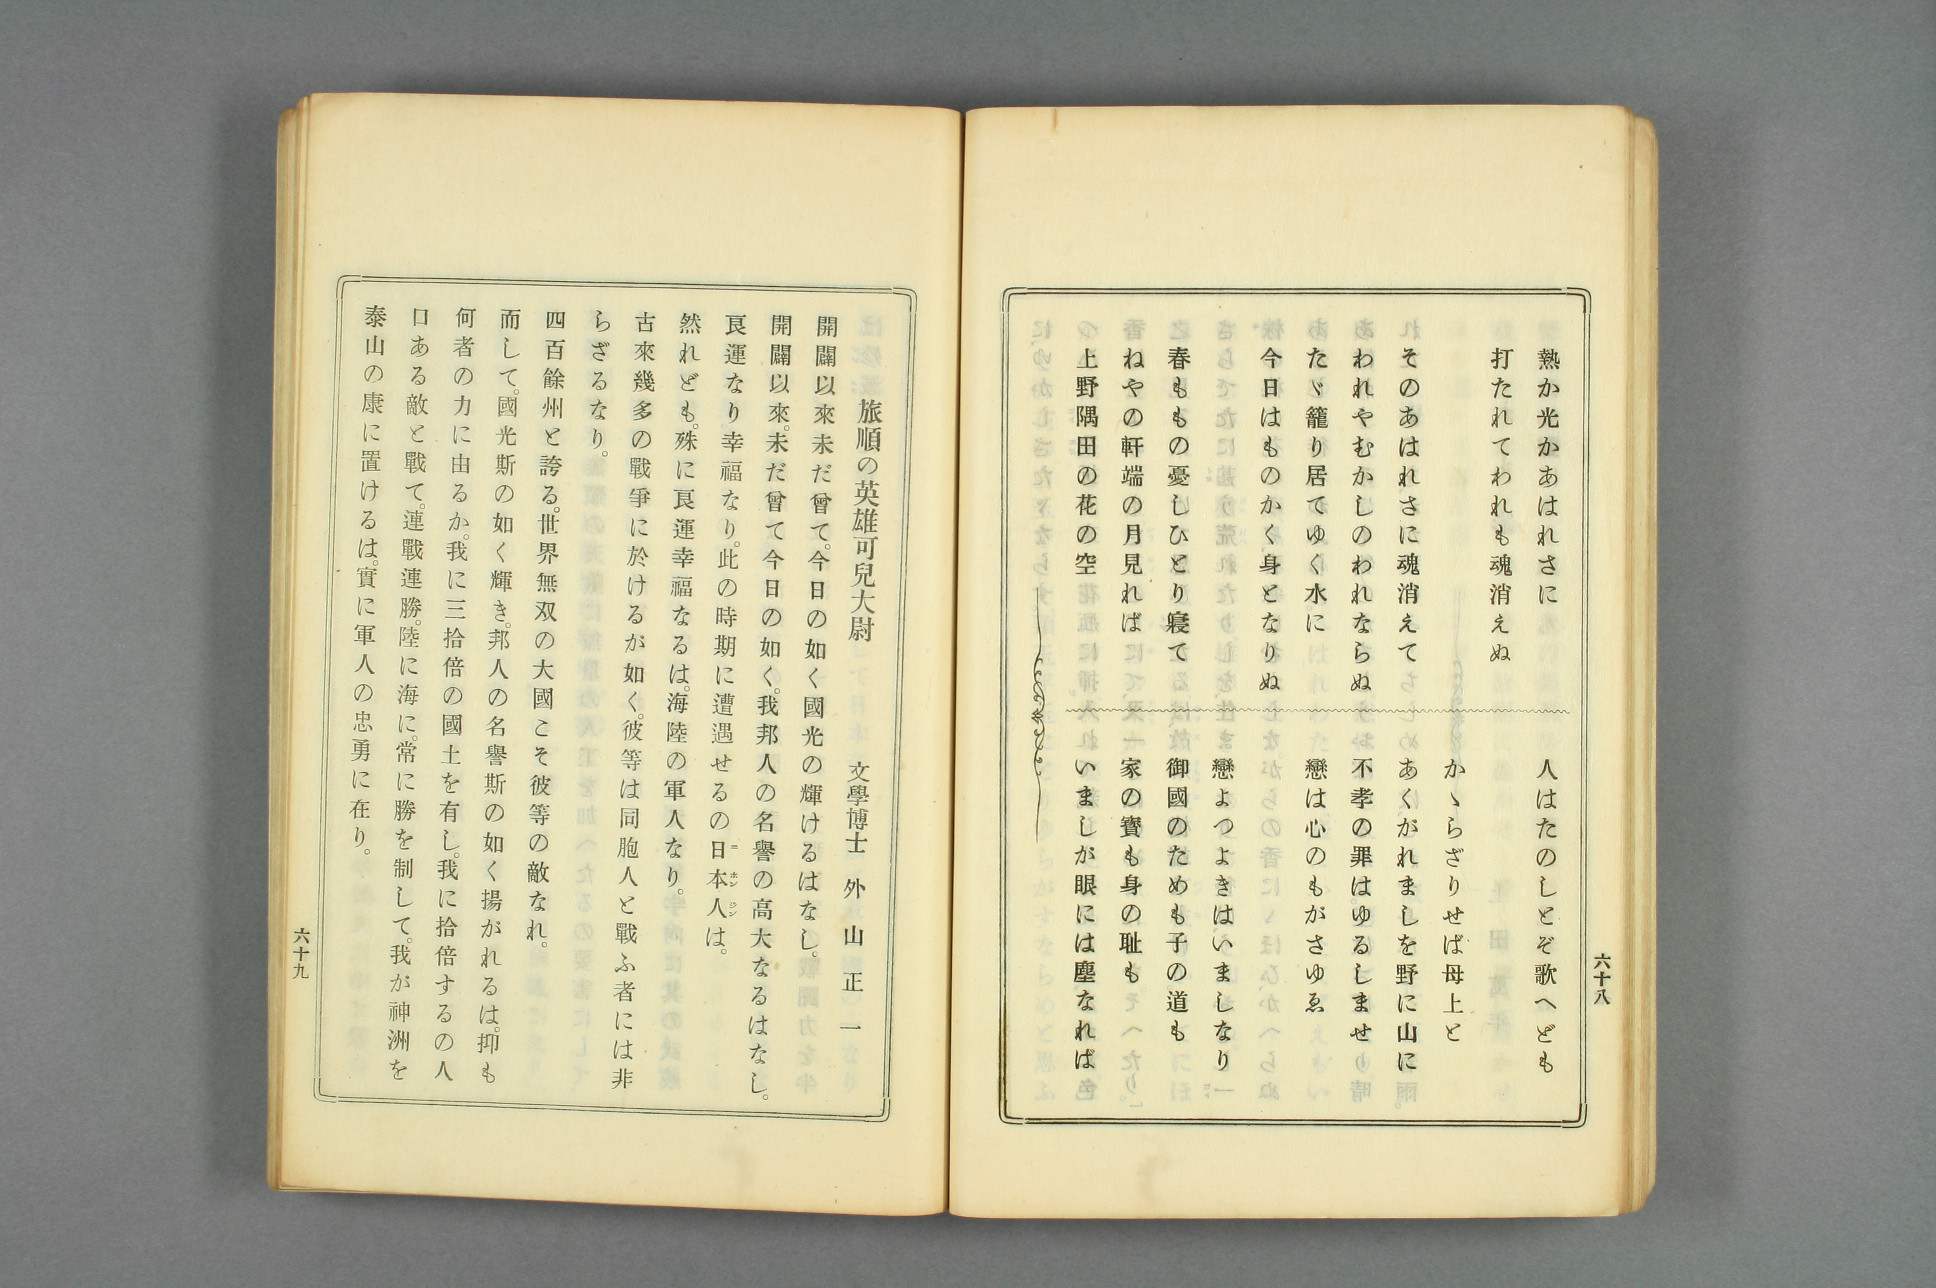 熱か光かあはれさに
打たれてわれも魂消えぬ
そのあはれさに魂消えて
われやむかしのわれならぬ
たゞ籠り居てゆく水に
今日はものかく身となりぬ
春ももの憂しひとり寝て
ねやの軒端の月見れば
上野隅田の花の空
人はたのしとぞ歌へども
かゝらざりせば母上と
あくがれましを野に山に
不孝の罪はゆるしませ
戀は心のもがさゆゑ
戀よつよきはいましなり
御國のためも子の道も
家の寳も身の耻も
いましが眼には塵なれば
六十八
旅順の英雄可兒大尉　文學博士　外山正一
開闢以來未だ曾て。今日の如く國光の輝けるはなし。
開闢以來。未だ曾て今日の如く。我邦人の名譽の高大なるはなし。
良運なり幸福なり。此の時期に遭遇せるの日本人は。
ニホンジン
然れども。殊に良運幸福なるは。海陸の軍人なり。
古來幾多の戰爭に於けるが如く。彼等は同胞人と戰ふ者には非
らざるなり。
四百餘州と誇る。世界無双の大國こそ彼等の敵なれ。
而して。國光斯の如く輝き。邦人の名譽斯の如く揚がれるは。抑も
何者の力に由るか。我に三拾倍の國土を有し。我に拾倍するの人
口ある敵と戰て。連戰連勝。陸に海に。常に勝を制して。我が神洲を
泰山の康に置けるは。實に軍人の忠勇に在り。
六十九